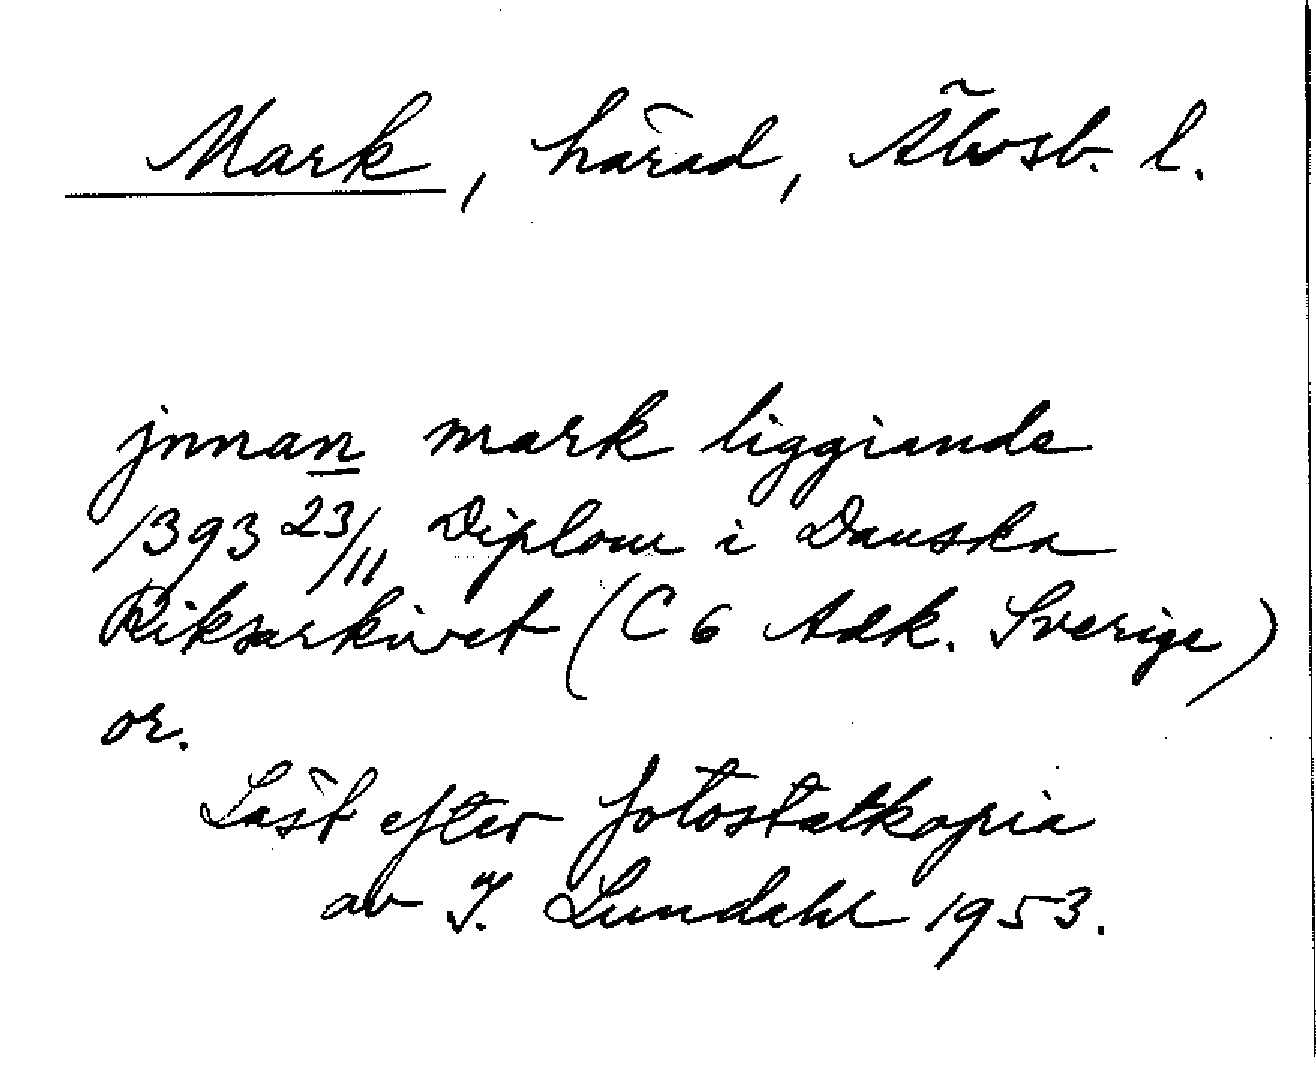 Mark, härad, Älvsb. l.
jnnan mark liggiande
1393 23/11 Diplom i Danska
Riksarkivet (C 6 Adk. Sverige)
or.
Läst efter fotostatkopia
av I. Lundahl 1953.